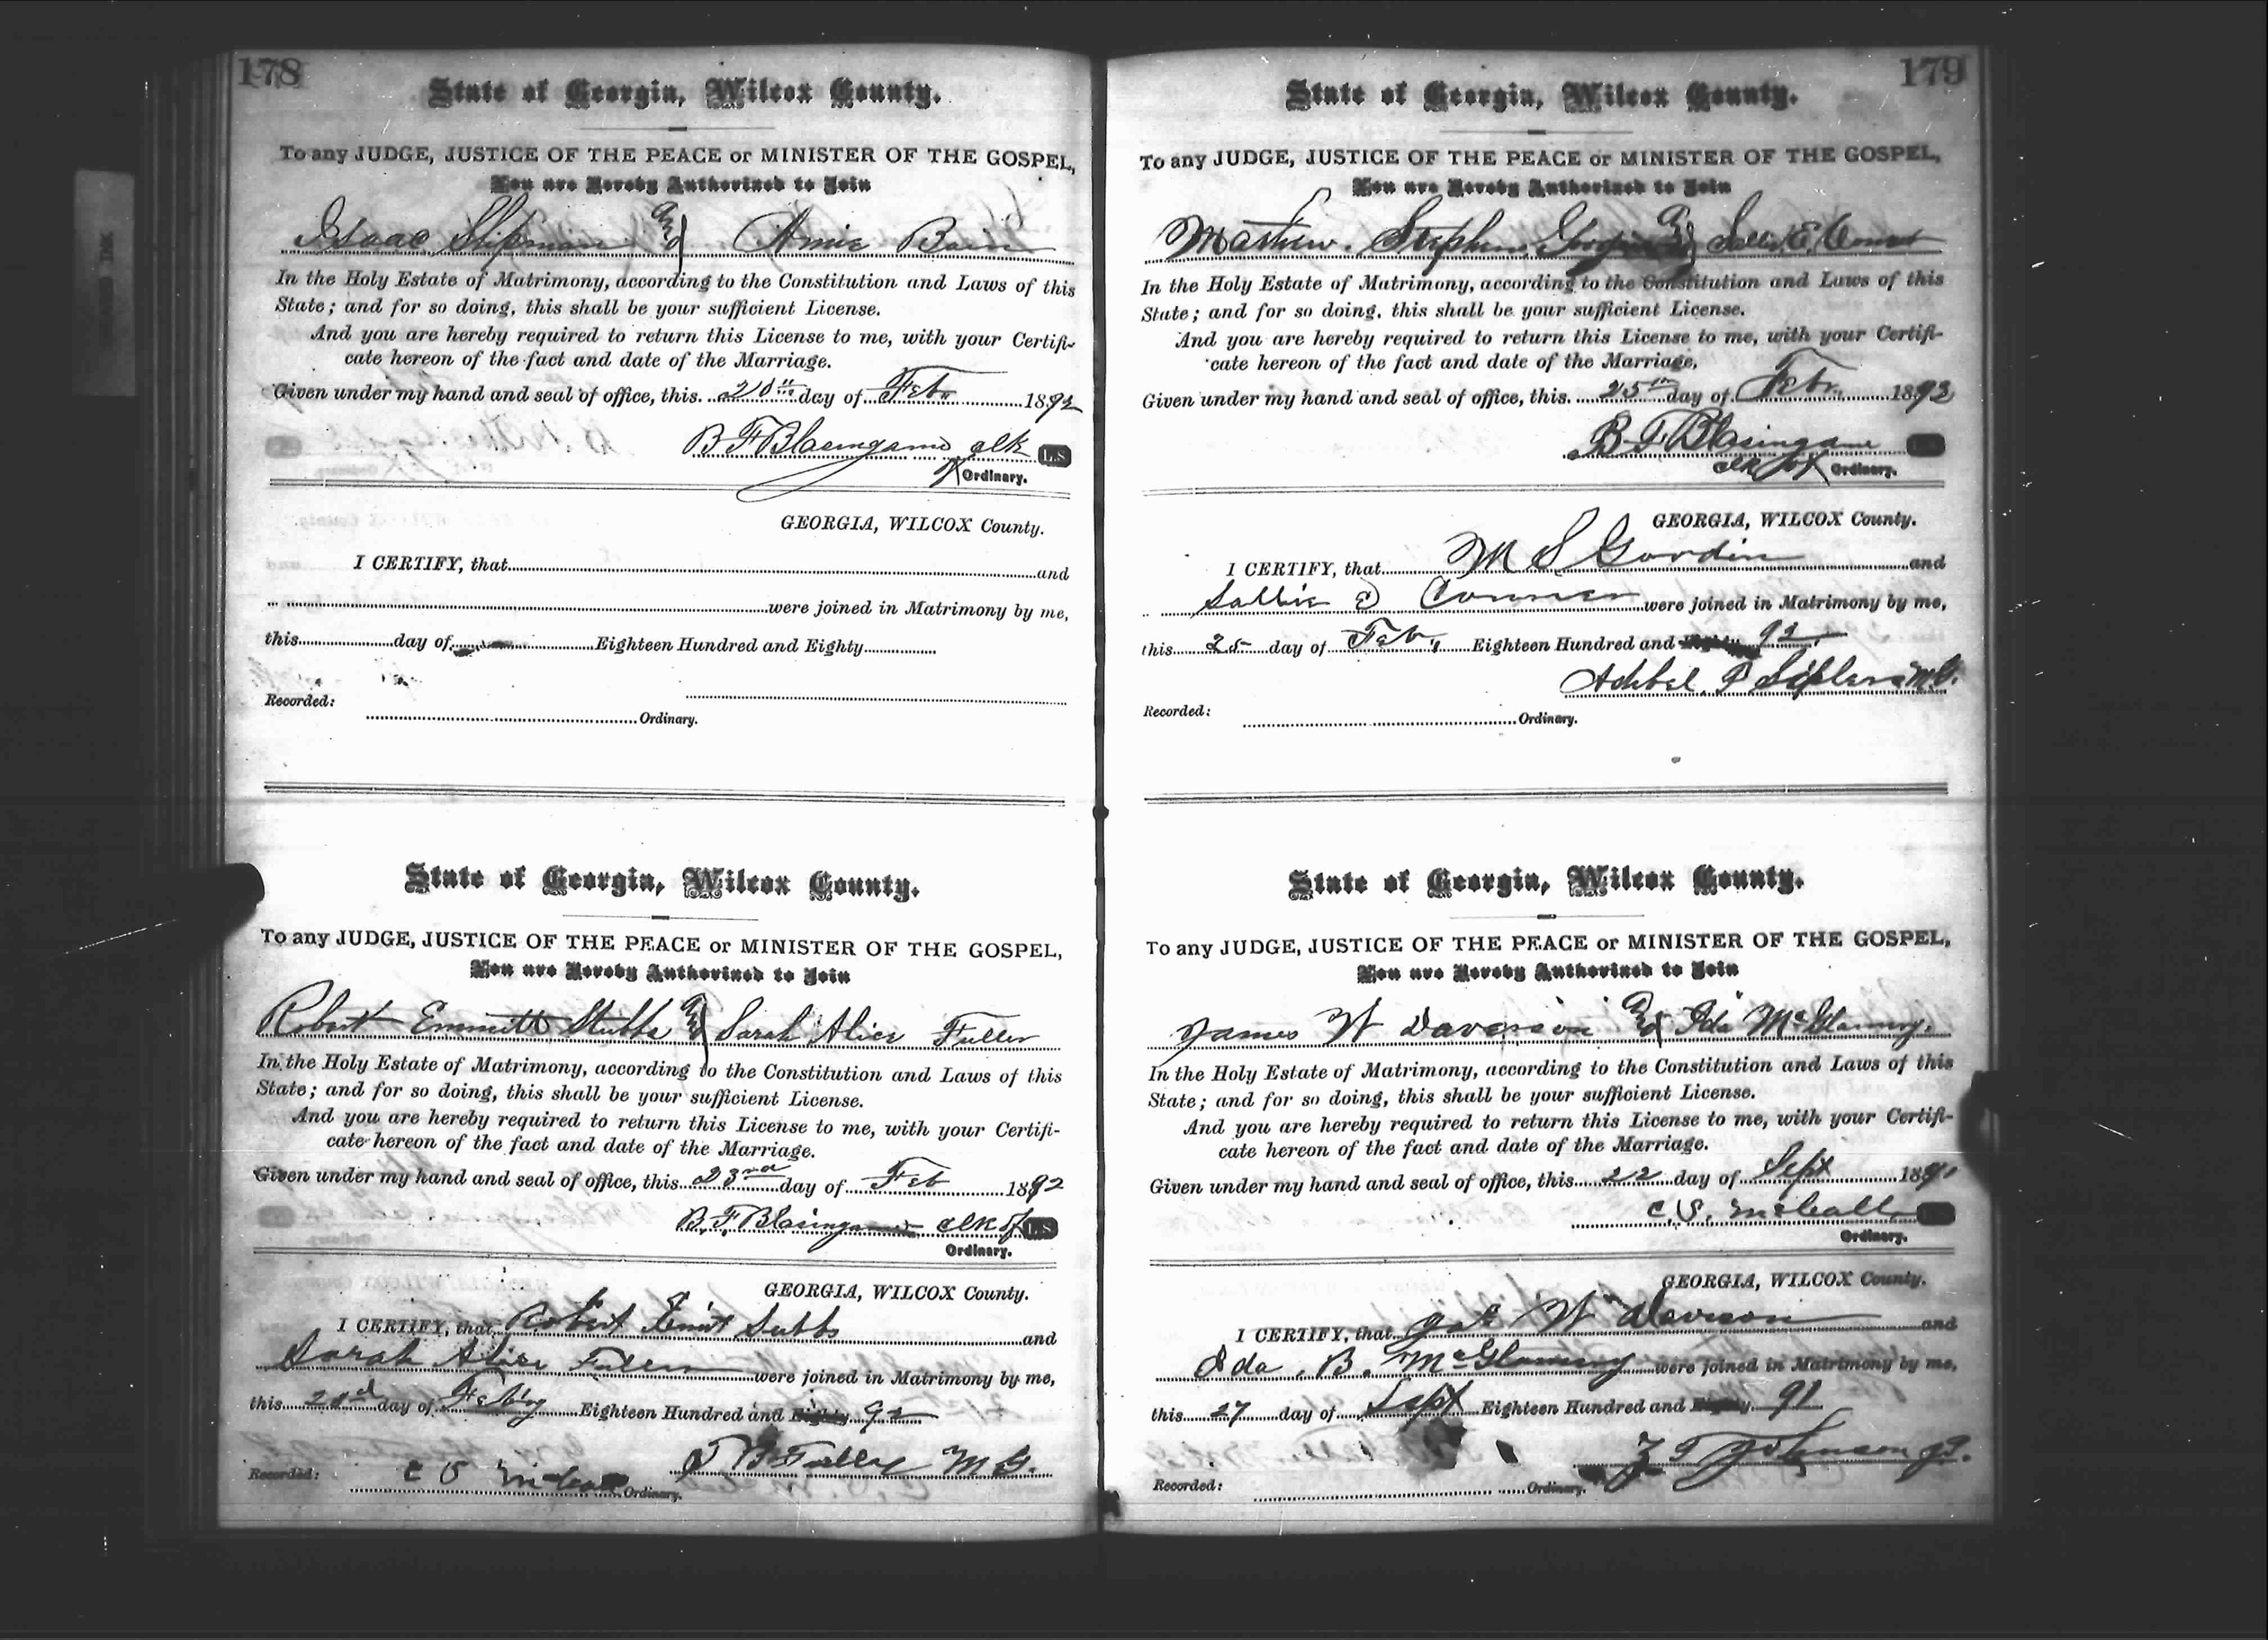 178
State of Georgia, Wilcox County.
To any JUDGE, JUSTICE OF THE PEACE or MINISTER OF THE GOSPEL,
You are Hereby Authorized to Join
Isaac Shipman and Amie Bain
In the Holy Estate of Matrimony, according to the Constitution and Laws of this
State; and for so doing, this shall be your sufficient License.
And you are hereby required to return this License to me, with your Certifi-
cate hereon of the fact and date of the Marriage.
Given under my hand and seal of office, this 20th day of Feb 1892
B F Blasingame clk L.S
Ordinary.
GEORGIA, WILCOX County.
I CERTIFY, that and
were joined in Matrimony by me,
this day of Eighteen Hundred and Eighty
Recorded:
Ordinary.
State of Georgia, Wilcox County.
To any JUDGE, JUSTICE OF THE PEACE or MINISTER OF THE GOSPEL,
You are Hereby Authorized to Join
Robert Emmitt Stubbs and Sarah Alice Fuller
In the Holy Estate of Matrimony, according to the Constitution and Laws of this
State; and for so doing, this shall be your sufficient License.
And you are hereby required to return this License to me, with your Certifi-
cate hereon of the fact and date of the Marriage.
Given under my hand and seal of office, this 23rd day of Feb 1892
B. F. Blasingame clk of L.S
Ordinary.
GEORGIA, WILCOX County.
I CERTIFY, that Robert Stubbs and
Sarah Alice Fuller were joined in Matrimony by me,
this day of Eighteen Hundred and Eighty 92
M G.
Recorded: C S Ordinary.
179
State of Georgia, Wilcox County.
To any JUDGE, JUSTICE OF THE PEACE or MINISTER OF THE GOSPEL,
You are Hereby Authorized to Join
Mathew Stephen and Sallie E. Conner
In the Holy Estate of Matrimony, according to the Constitution and Laws of this
State; and for so doing, this shall be your sufficient License.
And you are hereby required to return this License to me, with your Certifi-
cate hereon of the fact and date of the Marriage.
Given under my hand and seal of office, this 25th day of Feb 1892
B F Blasingame
clk of Ordinary.
GEORGIA, WILCOX County.
I CERTIFY, that M S Gordin and
Sallie Conner were joined in Matrimony by me,
this 25 day of Feb Eighteen Hundred and Eighty 92
P M.G.
Recorded:
Ordinary.
State of Georgia, Wilcox County.
To any JUDGE, JUSTICE OF THE PEACE or MINISTER OF THE GOSPEL,
You are Hereby Authorized to Join
James W Daverson and Ida McGlamry
In the Holy Estate of Matrimony, according to the Constitution and Laws of this
State; and for so doing, this shall be your sufficient License.
And you are hereby required to return this License to me, with your Certifi-
cate hereon of the fact and date of the Marriage.
Given under my hand and seal of office, this 22 day of Sept 1891
C. S. McCall
Ordinary.
GEORGIA, WILCOX County.
I CERTIFY, that W Daverson and
Ida B. McGlamry were joined in Matrimony by me,
this 27 day of Sept Eighteen Hundred and Eighty 91
Johnson JP.
Recorded: Ordinary.